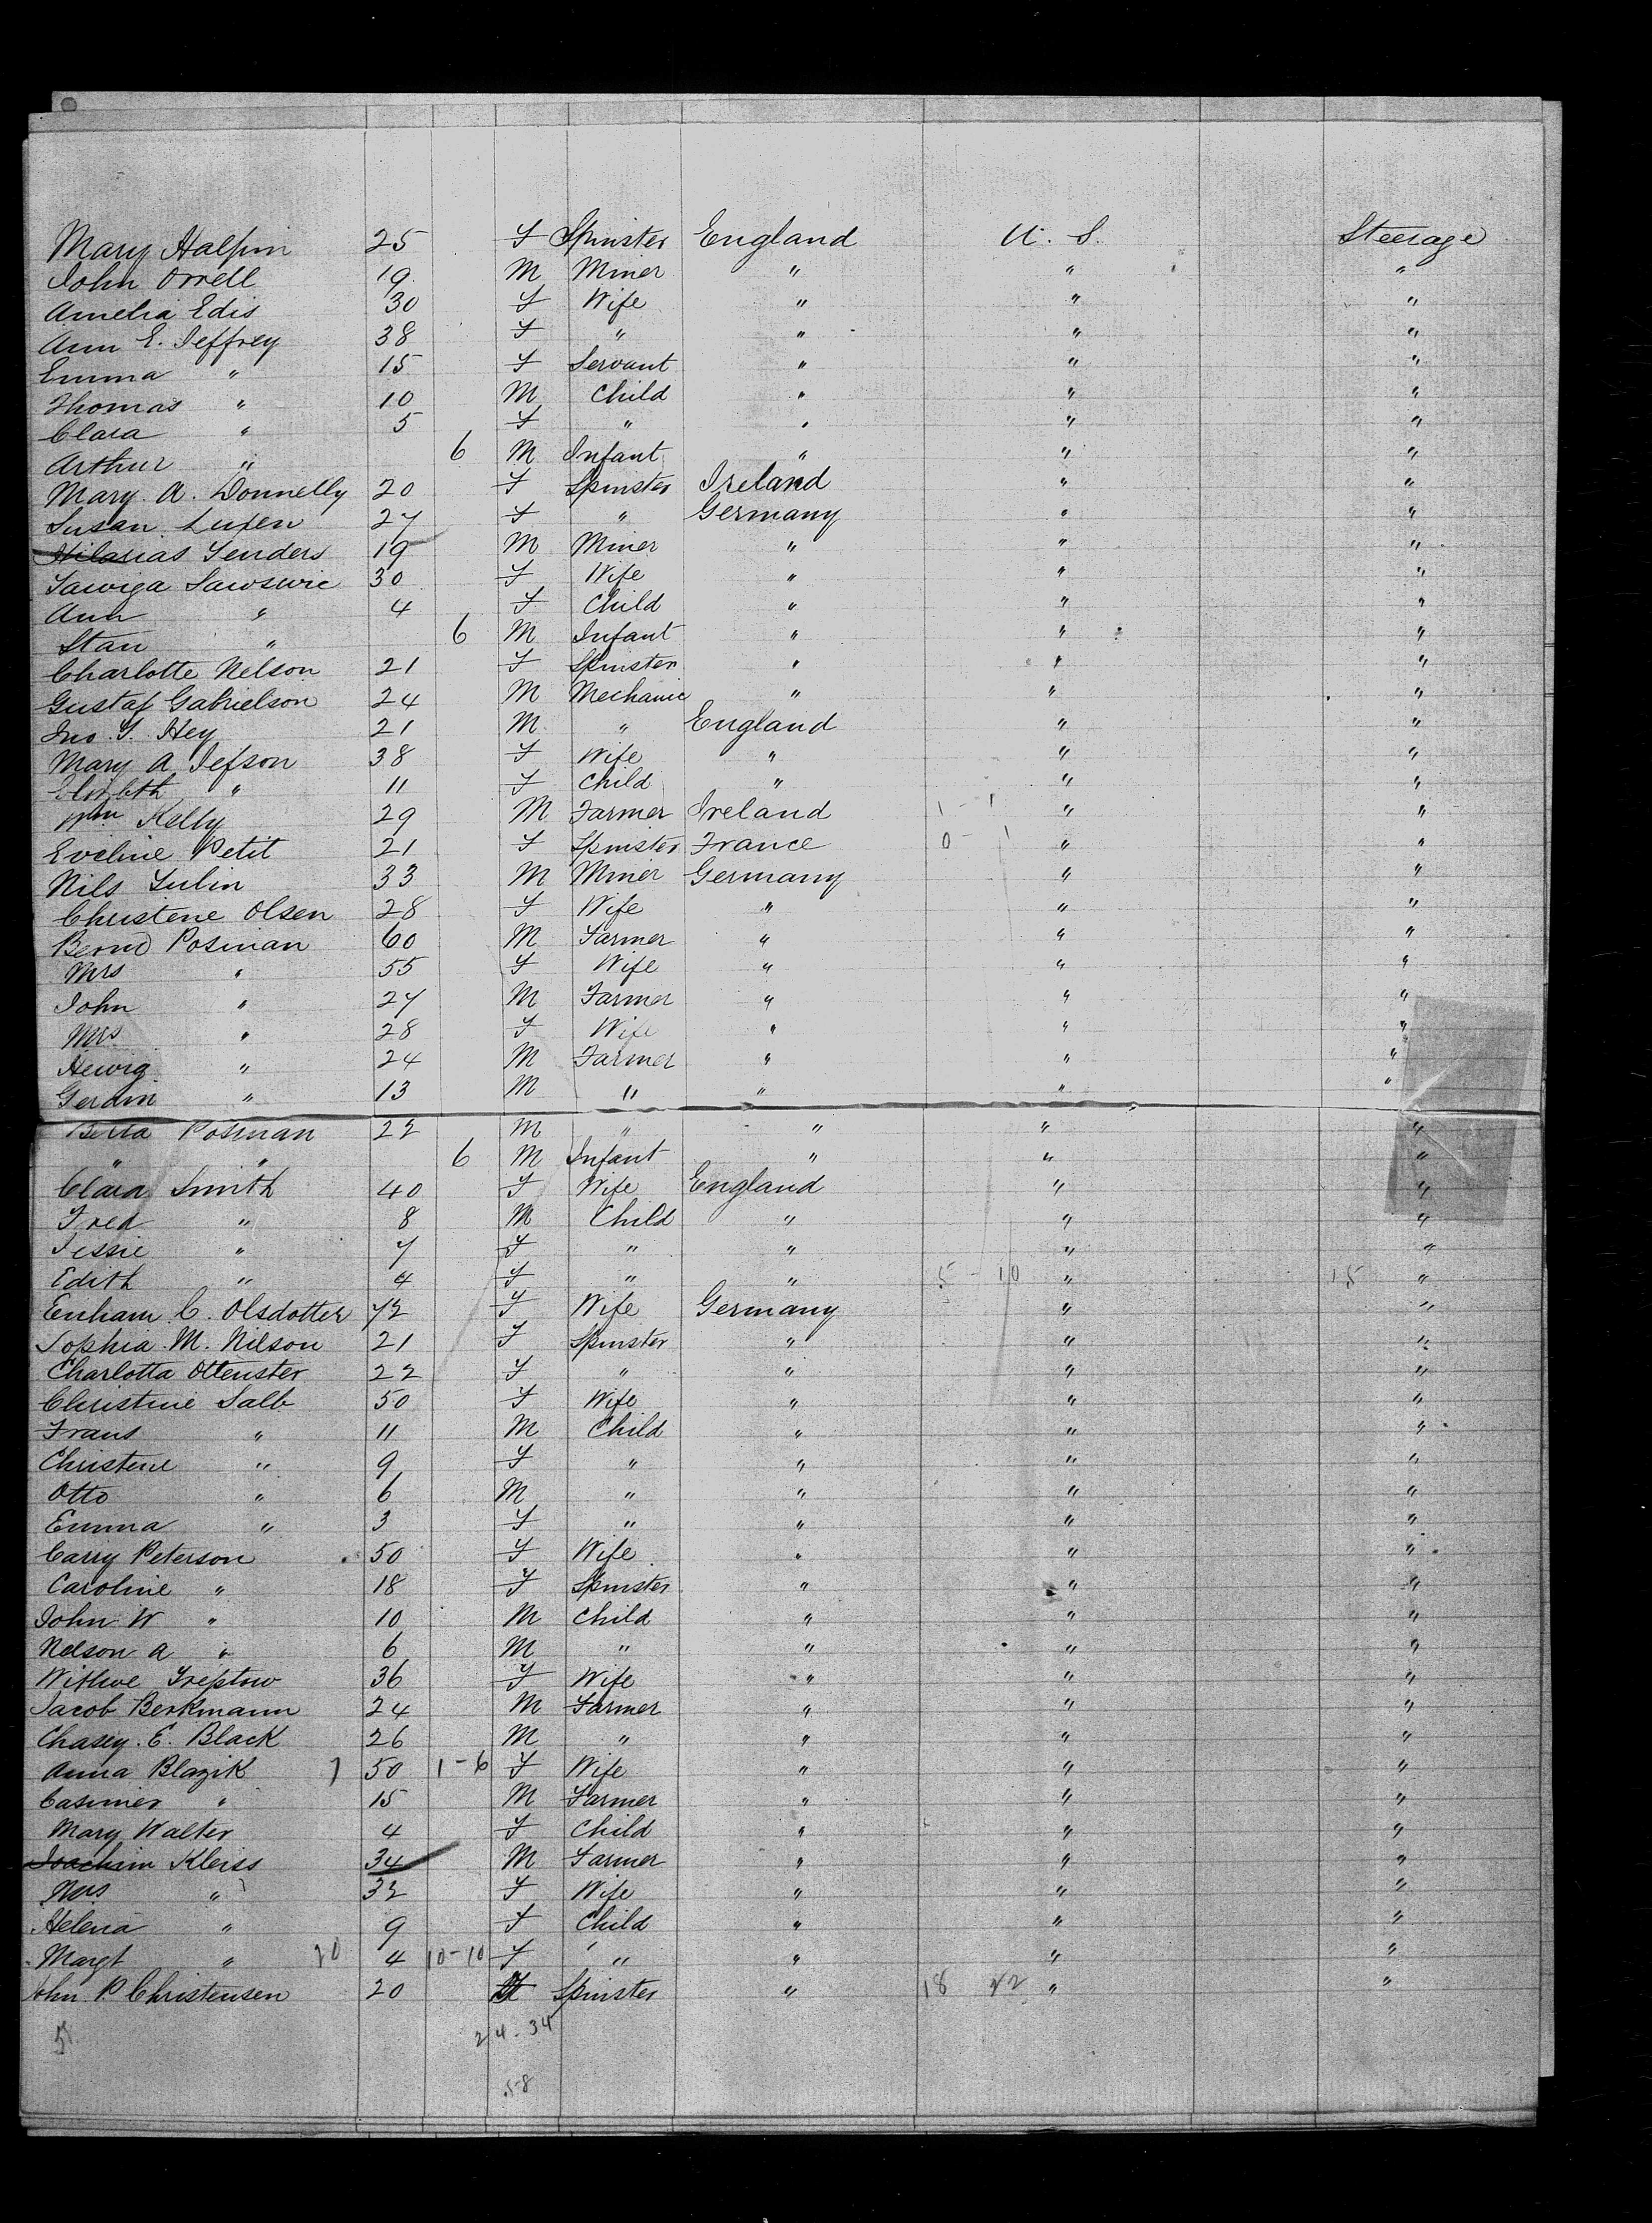 Mary Halpin 25 F Spinster England U. S. Steerage
John Orrell 19 M Miner " " "
Amelia Edis 30 F Wife " " "
Ann E. Jeffrey 38 F " " " "
Emma " 15 F Servant " " "
Thomas " 10 M Child " " "
Clara " 5 F " " " "
Arthur " 6 M Infant " " "
Mary A. Donnelly 20 F Spinster Ireland " "
Susan Luxen 27 F " Germany " "
Hilarias Senders 19 M Miner " " "
Jawiga Sawswic 30 F Wife " " "
Ann " 4 F Child " " "
Stan " 6 M Infant " " "
Charlotte Nelson 21 F Spinster " " "
Gustaf Gabrielson 24 M Mechanic " " "
Jno. T. Hey 21 M " England " "
Mary A Jefson 38 F Wife " " "
Elizbeth " 11 F Child " " "
Wm Kelly 29 M Farmer Ireland 1 - 1 " "
Eveline Petit 21 F Spinster France 0 - 1 " "
Nils Julin 33 M Miner Germany " "
Christene Olsen 28 F Wife " " "
Bernd Posman 60 M Farmer " " "
Mrs " 55 F Wife " " "
John " 27 M Farmer " " "
Mrs " 28 F Wife " " "
Hewig " 24 M Farmer " " "
Gerdin " 13 M " " " "
Berta Posman 22 M " " " "
" " 6 M Infant " " "
Clara Smith 40 F Wife England " "
Fred " 8 M Child " " "
Jessie " 7 F " " " "
Edith " 4 F " " 5 - 10 " 15 "
Enham C. Olsdotter 72 F Wife Germany " "
Sophia M. Nilson 21 F Spinster " " "
Charlotta Ottenster 22 F " " " "
Christine Salb 50 F Wife " " "
Frans " 11 M Child " " "
Christene " 9 F " " " "
Otto " 6 M " " " "
Emma " 3 F " " " "
Carry Peterson 50 F Wife " " "
Caroline " 18 F Spinster " " "
John W " 10 M Child " " "
Nelson A " 6 M " " " "
Treptow 36 F Wife " " "
Jacob Berkmann 24 M Farmer " " "
Chasey. E. Black 26 M " " " "
Anna Blazik 7 50 1 - 6 F Wife " " "
Casimer " 15 M Farmer " " "
Mary Walter 4 F Child " " "
Joachim Kleiss 34 M Farmer " " "
Mrs " 32 F Wife " " "
Helena " 9 F Child " " "
Margt " 20 4 10-10 F " " " "
John P. Christensen 20 Spinster " 18 22 " "
24 - 34
58